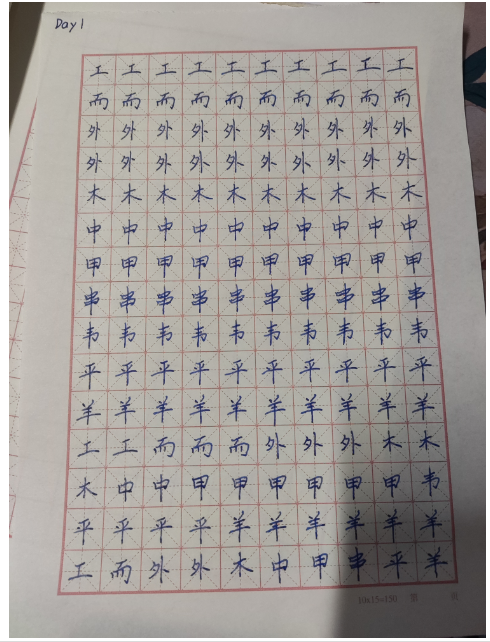 Day1
工工工工工工工工工工
而而而而而而而而而而
外外外外外外外外外外
外外外外外外外外外外
木木木木木木木木木木
中中中中中中中中中中
甲甲甲甲甲甲甲甲甲甲
串串串串串串串串串串
韦韦韦韦韦韦韦韦韦韦
平平平平平平平平平平
羊羊羊羊羊羊羊羊羊羊
工工而而而外外外木木
木中中甲甲甲甲甲甲韦
平平平平羊羊羊羊羊羊
工而外外木中甲串平羊
10x15=150 第 页